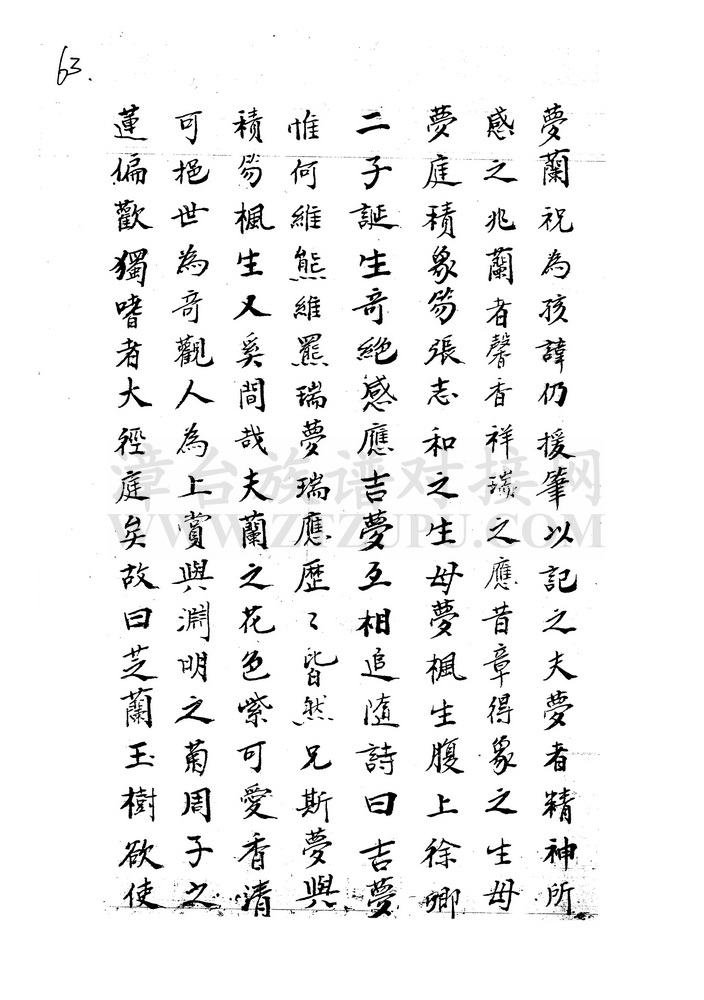 63.
夢蘭祝為孩諱仍援筆以記之夫夢者精神所
感之兆蘭者馨香祥瑞之應昔章得象之生母
夢庭積象笏張志和之生母夢楓生腹上徐卿
二子誕生奇絕感應吉夢互相追隨詩曰吉夢
惟何維熊維羆瑞夢瑞應歷〻皆然兄斯夢與
積笏楓生又奚間哉夫蘭之花色紫可愛香清
可挹世為奇觀人為上賞與淵明之菊周子之
蓮偏歡獨嗜者大徑庭矣故曰芝蘭玉樹欲使
漳台族谱对接网
WWW.ZTZUPU.COM